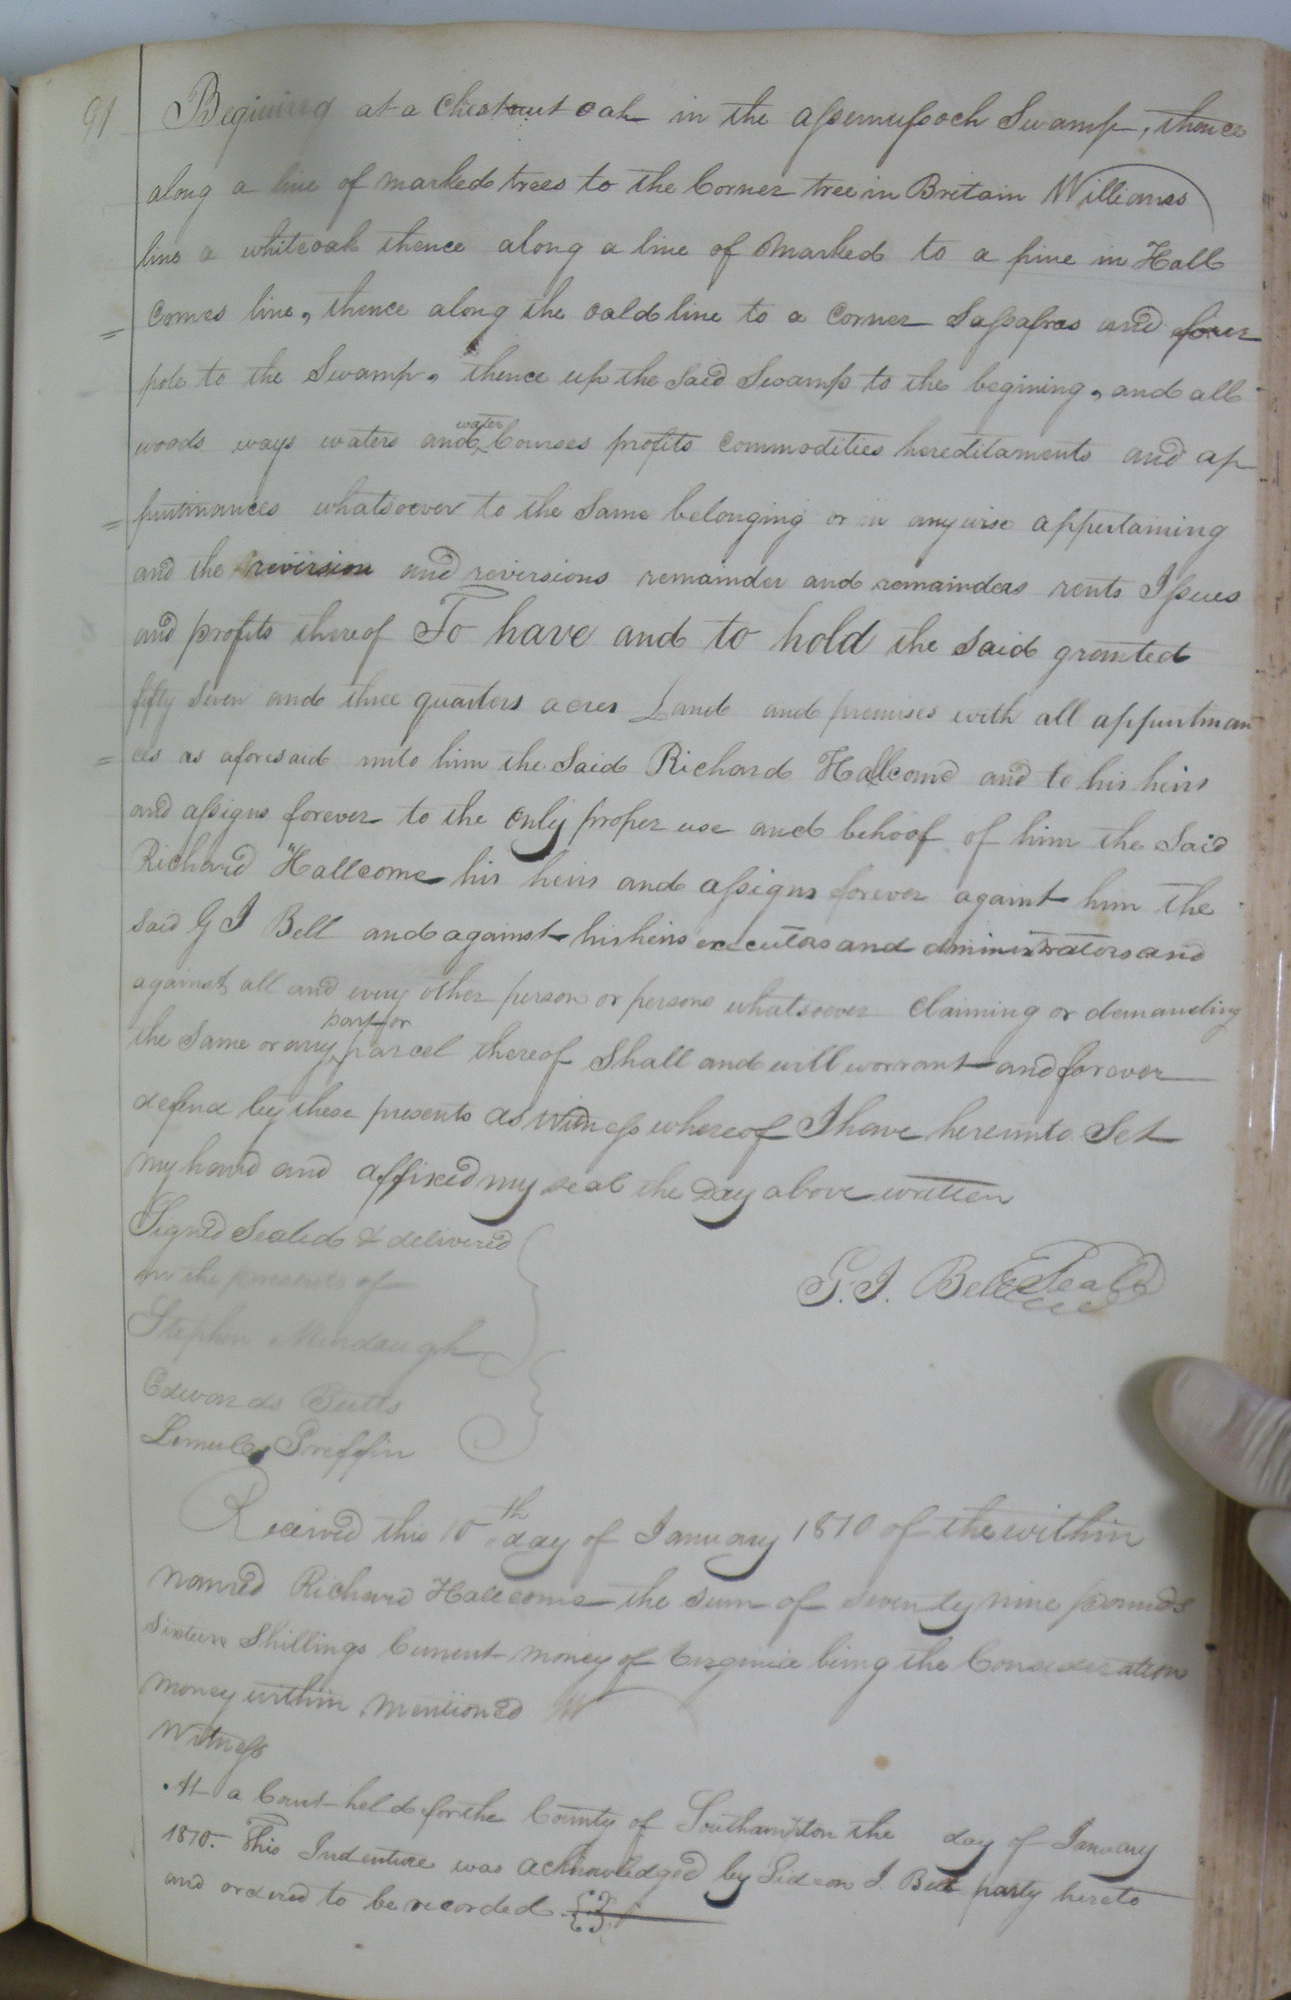 91
Begining at a Chestnut oak in the assemussoch Swamp, thence
along a line of marked trees to the Corner tree in Britain Williames
line a whiteoak thence along a line of Marked to a pine in Hall
Comes line, thence along the oald line to a Corner Sassafras and four
pole to the Swamp, thence up the Said Swamp to the begining, and all
woods ways waters and water Courses profits Commodities hereditaments and ap
purtinances whatsoever to the Same belonging or in anywise appertaining
and the reversion and reversions remainder and remainders rents Issues
and profits thereof To have and to hold the Said granted
fifty seven and three quarters acres Land and premises with all appurtinan
ces as aforesaid unto him the Said Richard Hallcome and to his heirs
and assigns forever to the only proper use and behoof of him the Said
Richard Hallcome his heirs and assigns forever against him the
Said G I Bell and against his heirs executors and administrators and
against all and every other person or persons whatsoever Claiming or demanding
the Same or any part or parcel thereof Shall and will warrant and forever
defend by these presents as Witness whereof I have hereunto Set
my hand and affixed my seal the Day above written
Signed Sealed & delivered
in the presents of
G. I. Bell Seal
Stephen Mundaugh
Edwards Butts
Lemuel Griffin
Received this 10th day of January 1810 of the within
Named Richard Hallcome the Sum of seventy nine pounds
Sixteen Shillings Current money of Virginia being the Consideration
money within mentioned
Witness
At a Court held for the County of Southampton the day of January
1810. This Indenture was acknowledged by Gideon I. Bell party hereto
and ordered to be recorded